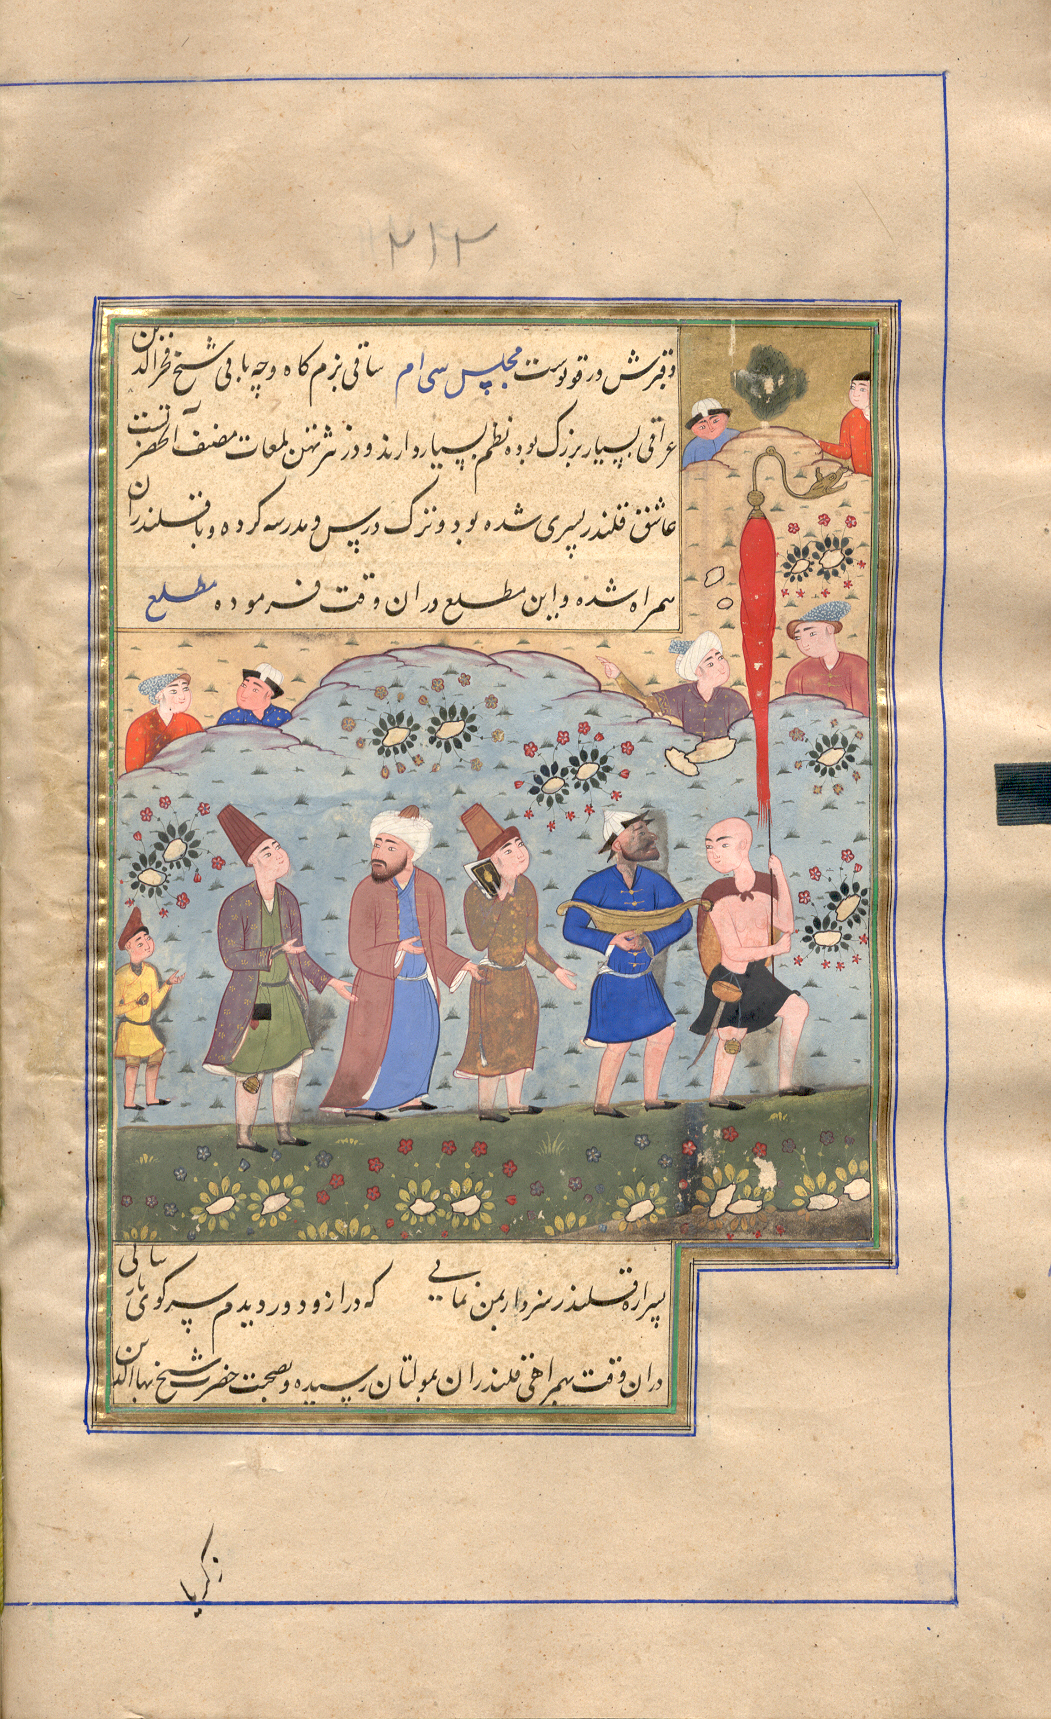 ۲۱۲
وقبرش در قونوست مجلس سی ام ساقی بزم کاه وچه باقی شیخ فخرالدین
عراقی بسیار بزرک بوده نظم بسیار دارند و در نثر لمعات مصنف آنحضرتست
عاشق قلندر پسری شده بود و ترک درس و مدرسه کرده وبا قلندران
همراه شده واین مطلع دران وقت فرموده مطلع
پسرا ره قلندر سزد ار بمن نمایی که دراز و دور دیدم سر کوی پارسایی
دران وقت بهمراهی قلندران بمولتان رسیده وبصحبت حضرت شیخ بهاالدین
زکریا